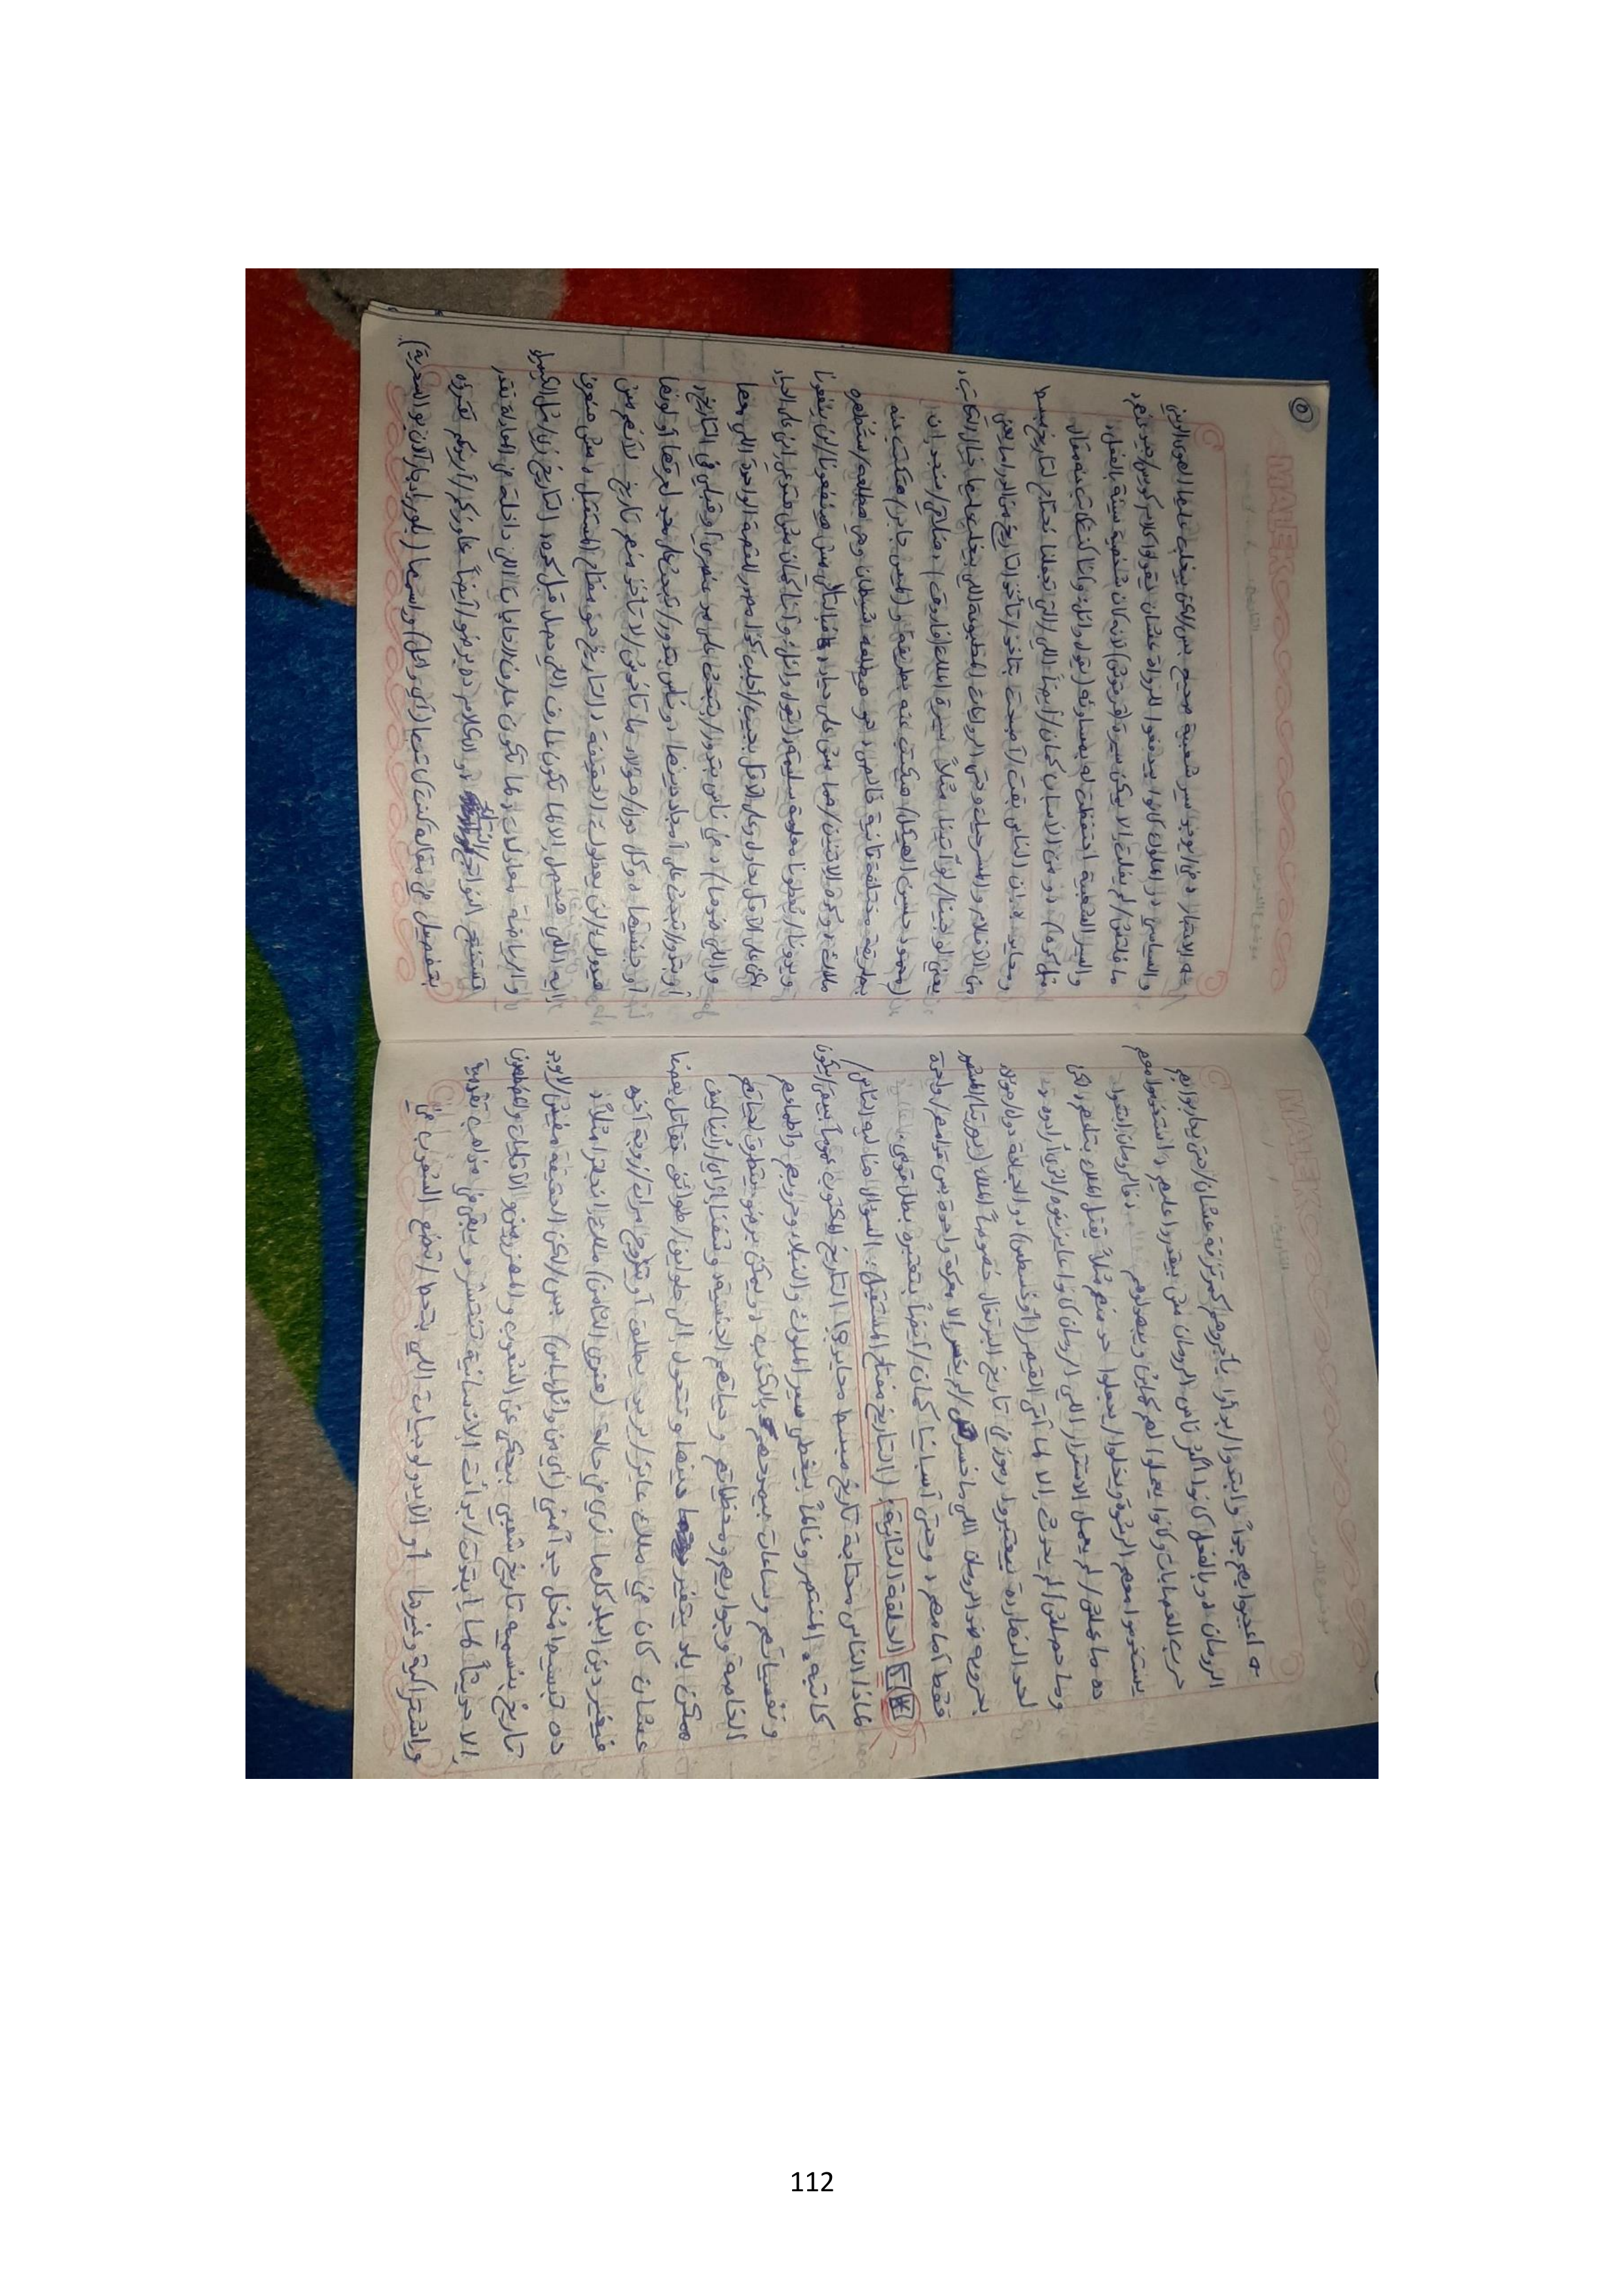 ← اعجبوا بيهم جداً وابتدوا/بدأوا يأجروهم كمرتزقة عشان/حتى يحاربوا بهم
الرومان، وبالفعل كانوا أكثر ناس الرومان مش بيقدروا عليهم، استخدموا معهم
حرب العصابات وكانوا يعملوا لهم كمائن ويبهدلوهم، فالرومان ابتدوا
يستخدموا معهم الرشوة ويخلوا/يجعلوا حد منهم مثلاً يقتل الملك بتاعهم، لكن
ده ما عملش/لم يعمل الاستقرار اللي الرومان كانوا عايزينوه/الذي أرادوه
وما حصلش/لم يحدث إلا لما أتى القيصر (أوغسطس)، والجماعة دول/هؤلاء
لحد النهارده بيعتبروا رموز في تاريخ البرتغال خصوصاً الملك المشهور
بحروبه ضد الرومان اللي ما خسرش/لم يخسر إلا معركة واحدة بس قدامهم/واحدة
فقط أمامهم، وحتى أسبانيا كمان/أيضاً بتعتبره بطل قومي.
الحلقة الثانية: (التاريخ مفتاح المستقبل): السؤال هنا ليه الناس/
لماذا الناس محتاجة تاريخ مبسط محايد؟! التاريخ المكتوب عموماً بيبقى/يكون
كاتبه المنتصر وغالباً بيغطي سير الملوك والنبلاء وحروبهم وأطماعهم
ونفسياتهم وساعات بيمدحهم بالكذب، ويمكن برضو يتطرق لحياتهم
الخاصة وجواريهم ومحظياتهم وحياتهم الجنسية، وشفنا إزاي/رأينا كيف
ممكن بلد يتغير دينها وتتحول إلى طوايف/طوائف تقاتل بعضها
عشان كان في ملك عايز/يريد يطلق أو يتزوج مرات/زوجة أخوه
فيغير دين البلد كلها زي في حالة (هنري الثامن) ملك إنجلترا مثلاً،
ده تبسيط مُخل جداً مني (أي من وائل عباس) بس/لكن الحقيقة مفيش/لا يوجد
تاريخ بنسميه تاريخ شعبي بيحكي عن الشعوب والمهزومين والأقليات والمضطهدين
إلا حديثاً لما ابتدت/بدأت الإنسانية تنتشر ويبقى في مذاهب تقدمية
واشتراكية وغيرها أو الأيديولوجيات اللي بتحط/تضع الشعوب في
٥
MALEK
موضوع الدرس
التاريخ
← الاعتبار، في/يوجد سير شعبية صحيح بس/لكن بيغلب عليها الهوى الديني
والسياسي، والملوك كانوا بيدفعوا للرواة عشان يقولوا كلام كويس/جيد عنهم،
ما فلتش/لم يفلت إلا يمكن سيرة (قرقوش) لأنه كان شخصية سيئة بالفعل،
والسير الشعبية احتفظت له بمساوئه (يقول وائل: وأنا كنت كاتب عنه مقال
مثل كده)، ومن الأسباب كمان/أيضاً اللي/التي تجعلنا نحتاج لتاريخ مبسط
ومحايد هو إن الناس بقت/أصبحت بتاخد/تأخذ التاريخ من الدراما يعني
من الأفلام والمسرحيات وحتى الروايات المطبوعة اللي بيغلب عليها خيال الكاتب،
يعني لو جينا/لو أتينا مثلاً لسيرة الملك (فاروق) هنلاقي/سنجد إن
(محمود حسين الهيكل) هيكتب عنه بطريقة و(لميس جابر) هتكتب عنه
بطريقة مختلفة تانية خالص، هو هيطلعه/سيُظهره شيطان وهي هتطلعه/ستُظهره
ملاك، وكده الاتنين/هما مش على حياد، فبالتالي مش هينفعونا/لن ينفعونا
ويدونا/يعطونا معلومة سليمة، (يقول وائل: وأنا كمان مش هدّعي إني على الحياد
لكن على الأقل بحاول وعلى الأقل بجيب/أجلب كذا مصدر للقصة الواحدة اللي معها
واللي ضدها)، في ناس بتدور/بتبحث على مبدأ عنصري أو قبلي في التاريخ،
أو بيدوروا/تبحث على أمجاد دينها، وناس بتدور/تبحث على مجد لعرقها أو لونها
أو جنسها، وكل دول/هؤلاء ما تاخدوش/لا تأخذ منهم تاريخ لأنهم مش
هيقولك/لن يقولوا لك الحقيقة، التاريخ هو مفتاح المستقبل، مش هتعرف
إيه اللي هيحصل إلا لما تكون عارف اللي حصل قبل كده، التاريخ زي/مثل الكيمياء
والرياضة معادلات، لما تكون عارف الخامات اللي داخلة في المعادلة تقدر
تستنتج النواتج/النتائج، والكلام ده برضو/أيضاً عاوزكم/أريدكم تقرؤوه
بتفصيل في مقالة كنت كاتبها (أي وائل) واسمها (بلورة بجارالان بو السحرية).
112